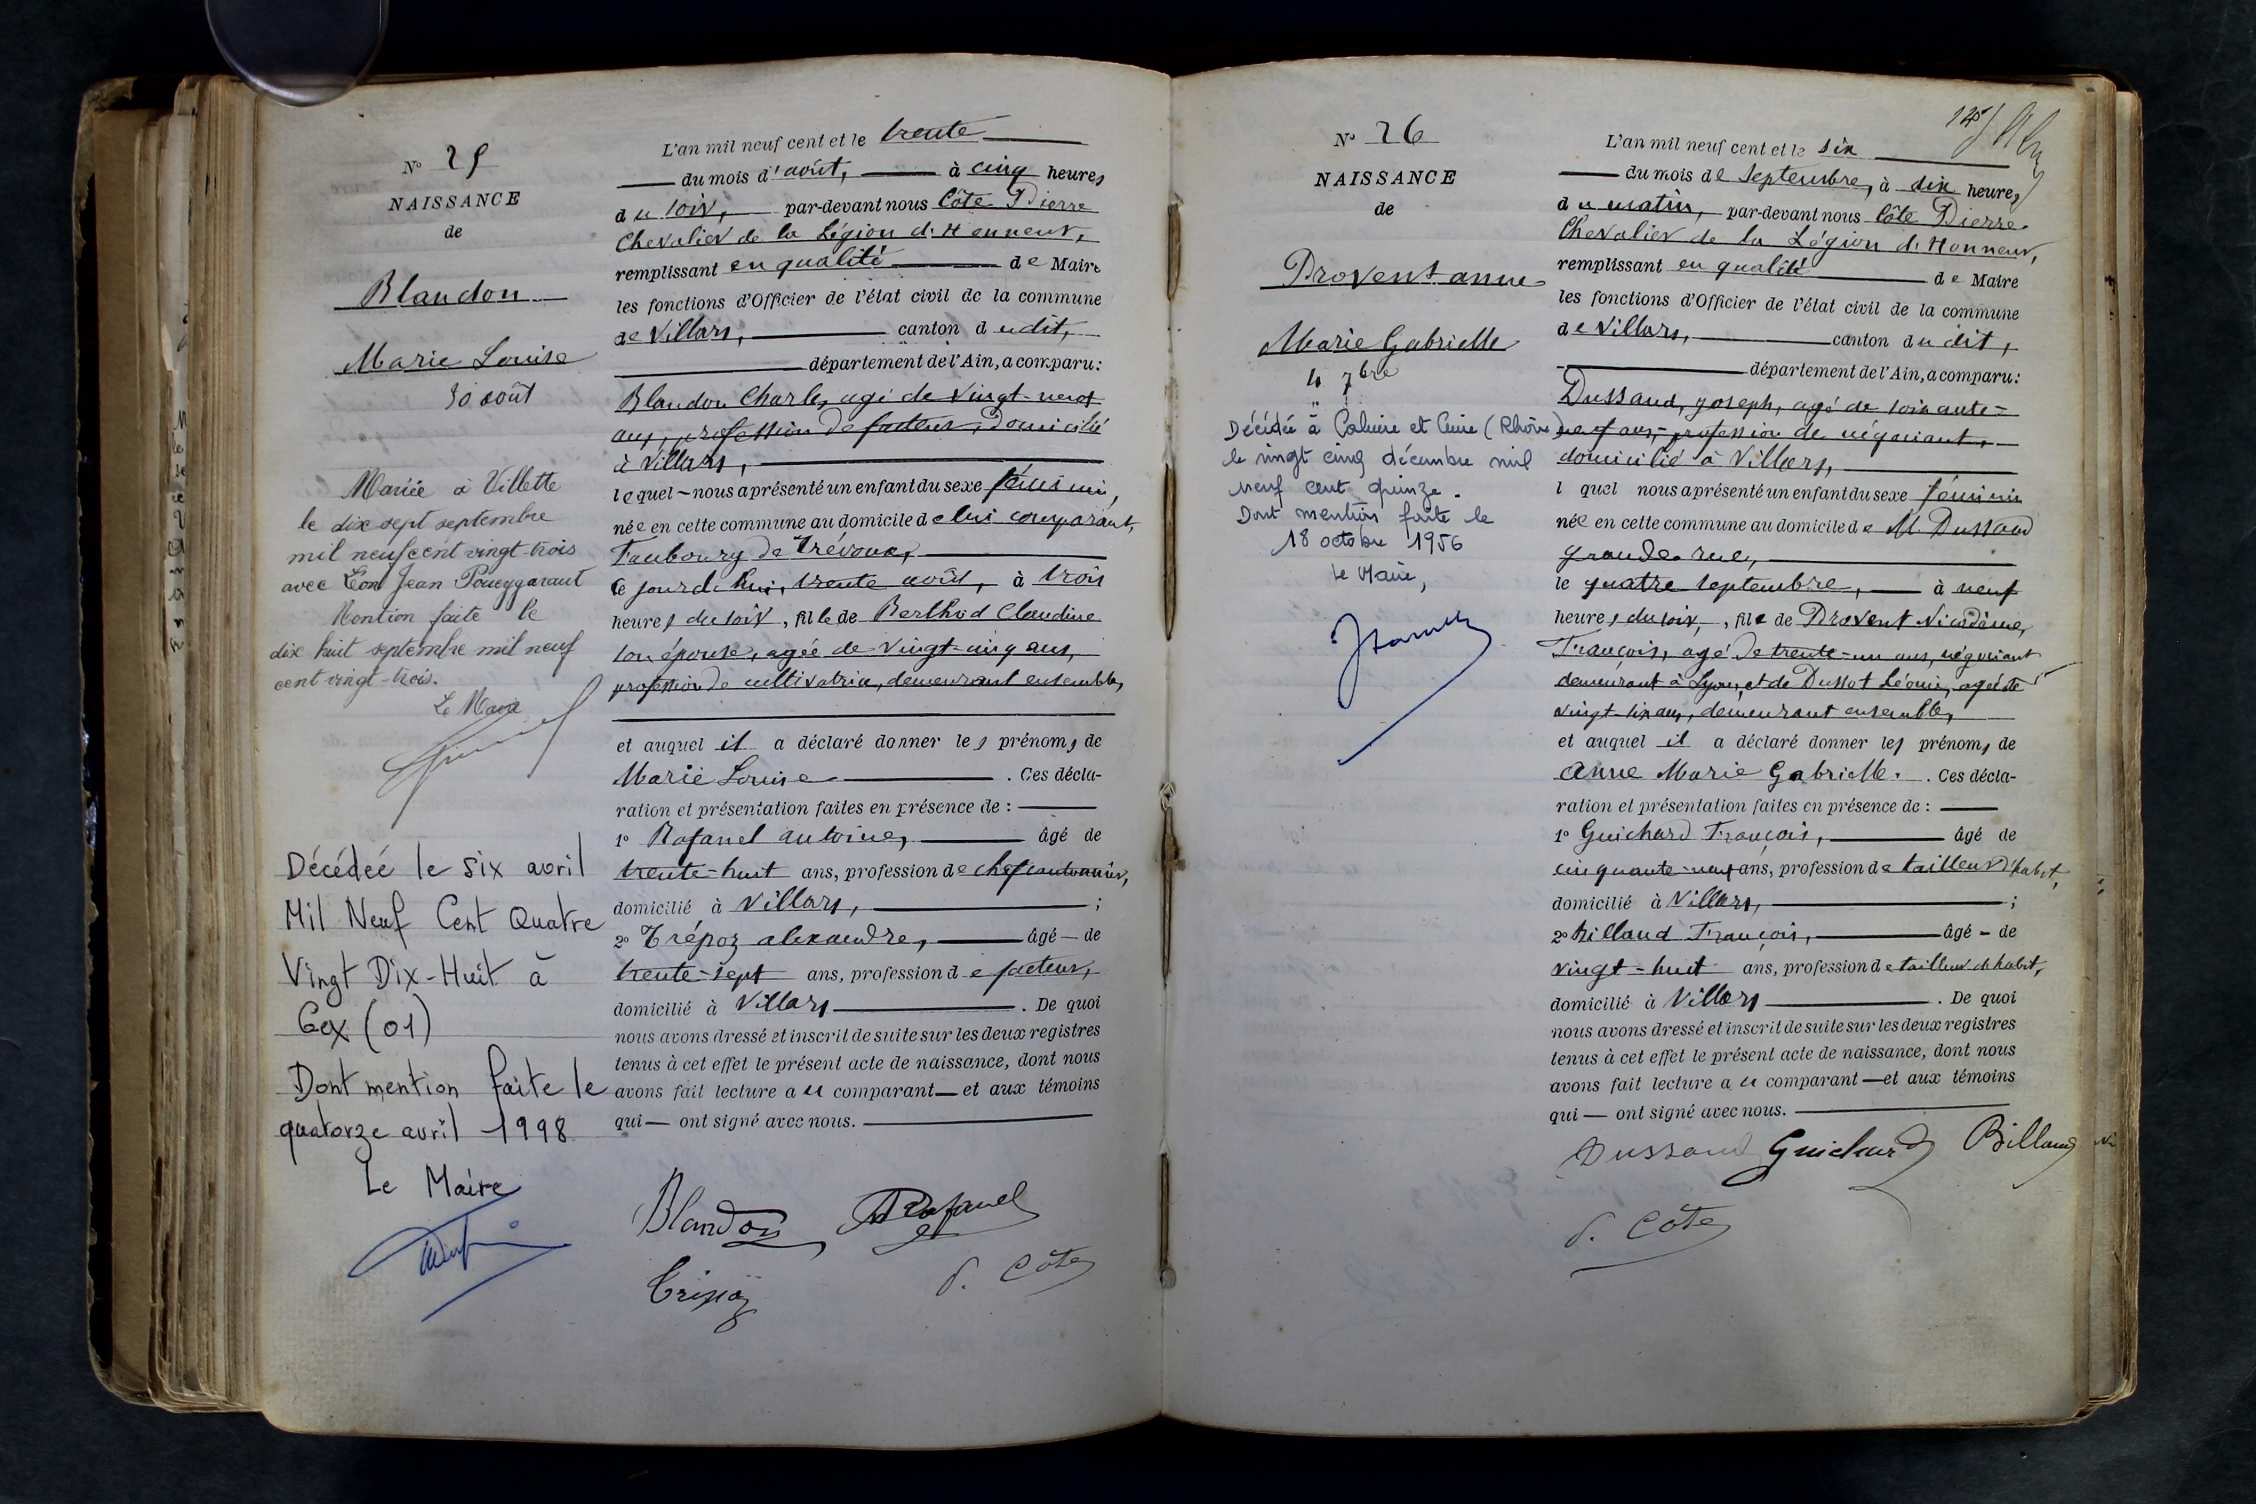 N° 25
NAISSANCE
de
Blandon
Marie Louise
30 août
Mariée à Villette
le dix sept septembre
mil neuf cent vingt-trois
avec Léon Jean Poueygaraut
Mention faite le
dix huit septembre mil neuf
cent vingt-trois.
Le Maire
Décédée le six avril
Mil Neuf Cent Quatre
Vingt Dix-Huit à
Gex (01)
Dont mention faite le
quatorze avril 1998
Le Maire
L'an mil neuf cent et le trente
du mois d'août, à cinq heures
du soir, par-devant nous Côte Pierre
Chevalier de la Légion d'Honneur,
remplissant en qualité de Maire
les fonctions d'Officier de l'état civil de la commune
de Villars, canton dudit,
département de l'Ain, a comparu:
Blandon Charles, agé de vingt-neuf
ans, profession de facteur, domicilié
à Villars,
lequel nous a présenté un enfant du sexe féminin,
née en cette commune au domicile de lui comparant,
Faubourg de Trévoux,
le jourd'hui, trente août, à trois
heures du soir, fille de Berthod Claudine
son épouse, agée de vingt-cinq ans,
profession de cultivatrice, demeurant ensemble,
et auquel il a déclaré donner les prénoms de
Marie Louise. Ces décla-
ration et présentation faites en présence de :
1° Rafanel antoine, âgé de
trente-huit ans, profession de chef cantonnier,
domicilié à Villars, ;
2° Trépoz alexandre, âgé de
trente-sept ans, profession de facteur,
domicilié à Villars. De quoi
nous avons dressé et inscrit de suite sur les deux registres
tenus à cet effet le présent acte de naissance, dont nous
avons fait lecture au comparant et aux témoins
qui ont signé avec nous.
Blandon Rafanel
Trépoz P. Côte
125
N° 26
NAISSANCE
de
Provent anne
Marie Gabrielle
4 7bre
Décédée à Caluire et Cuire (Rhône)
le vingt cinq décembre mil
neuf cent quinze.
Dont mention faite le
18 octobre 1956
Le Maire,
L'an mil neuf cent et le six
du mois de Septembre, à dix heures
du matin, par-devant nous Côte Pierre
Chevalier de la Légion d'Honneur,
remplissant en qualité de Maire
les fonctions d'Officier de l'état civil de la commune
de Villars, canton dudit,
département de l'Ain, a comparu:
Dussaud, Joseph, agé de soixante=
neuf ans, profession de négociant,
domicilié à Villars,
l quel nous a présenté un enfant du sexe féminin
née en cette commune au domicile de M. Dussaud
grande rue,
le quatre septembre, à neuf
heures du soir, fille de Provent Nicodème,
François, agé de trente-un ans, négociant
demeurant à Lyon, et de Dussot Léonie, agée de
vingt-six ans, demeurant ensemble,
et auquel il a déclaré donner les prénoms de
Anne Marie Gabrielle. Ces décla-
ration et présentation faites en présence de :
1° Guichard François, âgé de
cinquante-neuf ans, profession de tailleur d'habit,
domicilié à Villars, ;
2° Billaud François, âgé de
vingt-huit ans, profession de tailleur d'habit,
domicilié à Villars. De quoi
nous avons dressé et inscrit de suite sur les deux registres
tenus à cet effet le présent acte de naissance, dont nous
avons fait lecture au comparant et aux témoins
qui ont signé avec nous.
Dussaud Guichard Billaud
P. Côte